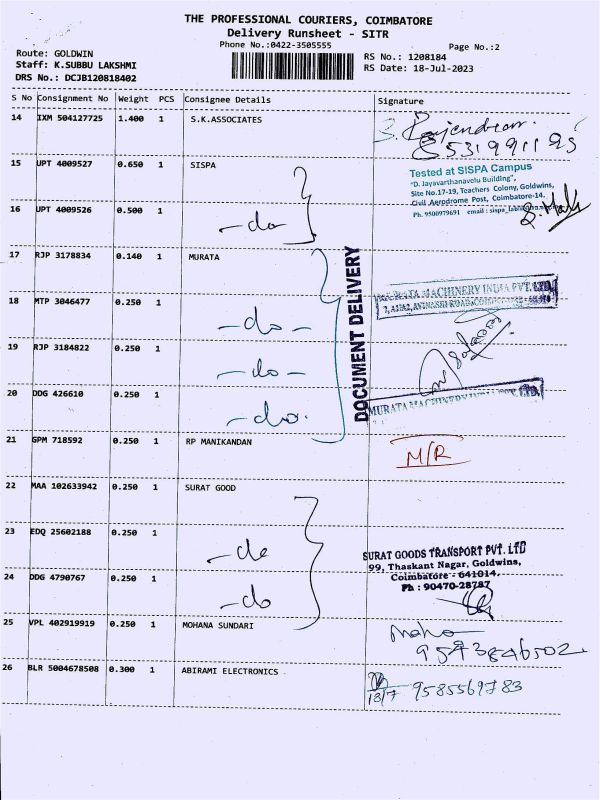 THE PROFESSIONAL COURIERS, COIMBATORE
Delivery Runsheet - SITR
Phone No.:0422-3505555
Page No.:2
Route: GOLDWIN
RS No.: 1208184
Staff: K.SUBBU LAKSHMI
RS Date: 18-Jul-2023
DRS No.: DCJB120818402
S No Consignment No Weight PCS Consignee Details Signature
14 IXM 504127725 1.400 1 S.K.ASSOCIATES
15 UPT 4009527 0.650 1 SISPA
Tested at SISPA Campus
"D. Jayavarthanavelu Building",
Site No.17-19, Teachers Colony, Goldwins,
Civil Aerodrome Post, Coimbatore-14.
Ph. 9500979691 email :
16 UPT 4009526 0.500 1 -do-
17 RJP 3178834 0.140 1 MURATA
DOCUMENT DELIVERY
MURATA MACHINERY INDIA PVT. LTD.
18 MTP 3046477 0.250 1 -do-
19 RJP 3184822 0.250 1 -do-
20 DDG 426610 0.250 1 -do-
MURATA MACHINERY INDIA PVT. LTD.
21 GPM 718592 0.250 1 RP MANIKANDAN M/R
22 MAA 102633942 0.250 1 SURAT GOOD
23 EDQ 25602188 0.250 1 -do
SURAT GOODS TRANSPORT PVT. LTD
99, Thaskant Nagar, Goldwins,
Coimbatore - 641014.
Ph : 90470-28787
24 DDG 4790767 0.250 1 -do
25 VPL 402919919 0.250 1 MOHANA SUNDARI
26 BLR 5004678508 0.300 1 ABIRAMI ELECTRONICS
18/7 9585569783